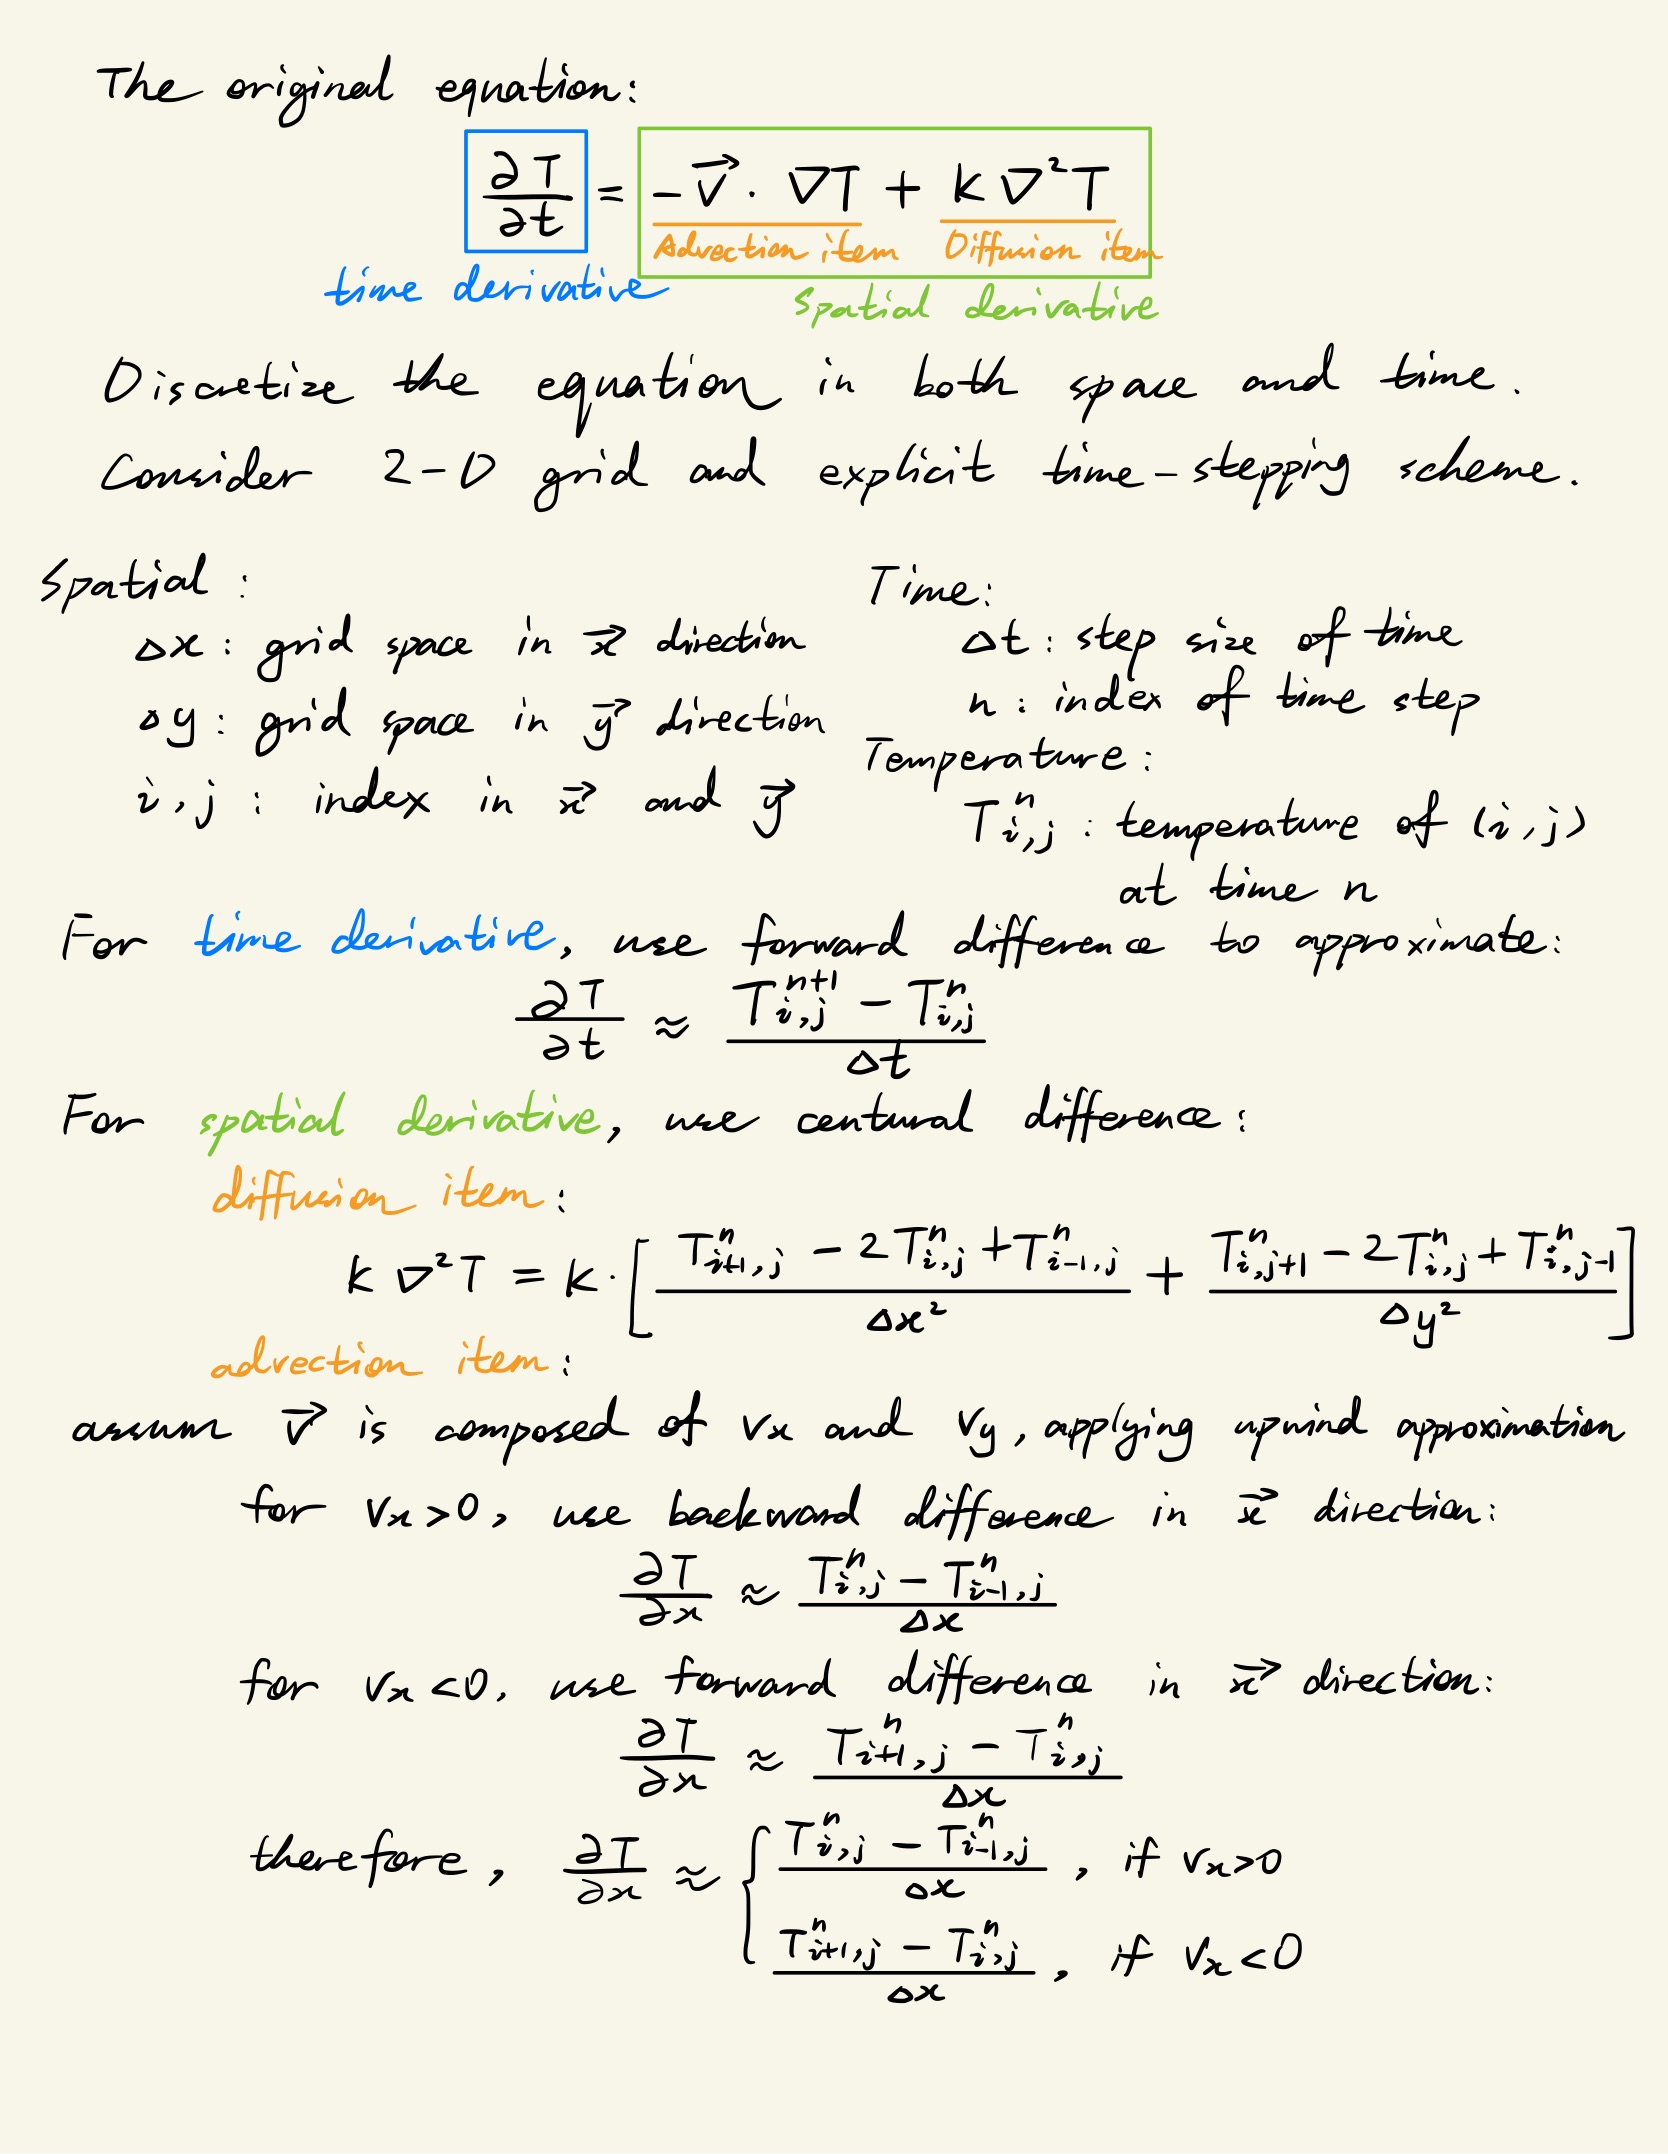 The original equation:
∂T/∂t = -v⃗ · ∇T + k∇²T
Advection item Diffusion item
time derivative
spatial derivative
Discretize the equation in both space and time.
Consider 2-D grid and explicit time-stepping scheme.
Spatial:
Δx: grid space in x⃗ direction
Δy: grid space in y⃗ direction
i, j: index in x⃗ and y⃗
Time:
Δt: step size of time
n: index of time step
Temperature:
T^n_{i,j}: temperature of (i, j)
at time n
For time derivative, use forward difference to approximate:
∂T/∂t ≈ (T^{n+1}_{i,j} - T^n_{i,j})/Δt
For spatial derivative, use centural difference:
diffusion item:
k∇²T = k·[(T^n_{i+1,j} - 2T^n_{i,j} + T^n_{i-1,j})/Δx² + (T^n_{i,j+1} - 2T^n_{i,j} + T^n_{i,j-1})/Δy²]
advection item:
assum v⃗ is composed of vx and vy, applying upwind approximation
for vx>0, use backward difference in x⃗ direction:
∂T/∂x ≈ (T^n_{i,j} - T^n_{i-1,j})/Δx
for vx<0, use forward difference in x⃗ direction:
∂T/∂x ≈ (T^n_{i+1,j} - T^n_{i,j})/Δx
therefore, ∂T/∂x ≈ { (T^n_{i,j} - T^n_{i-1,j})/Δx, if vx>0
(T^n_{i+1,j} - T^n_{i,j})/Δx, if vx<0